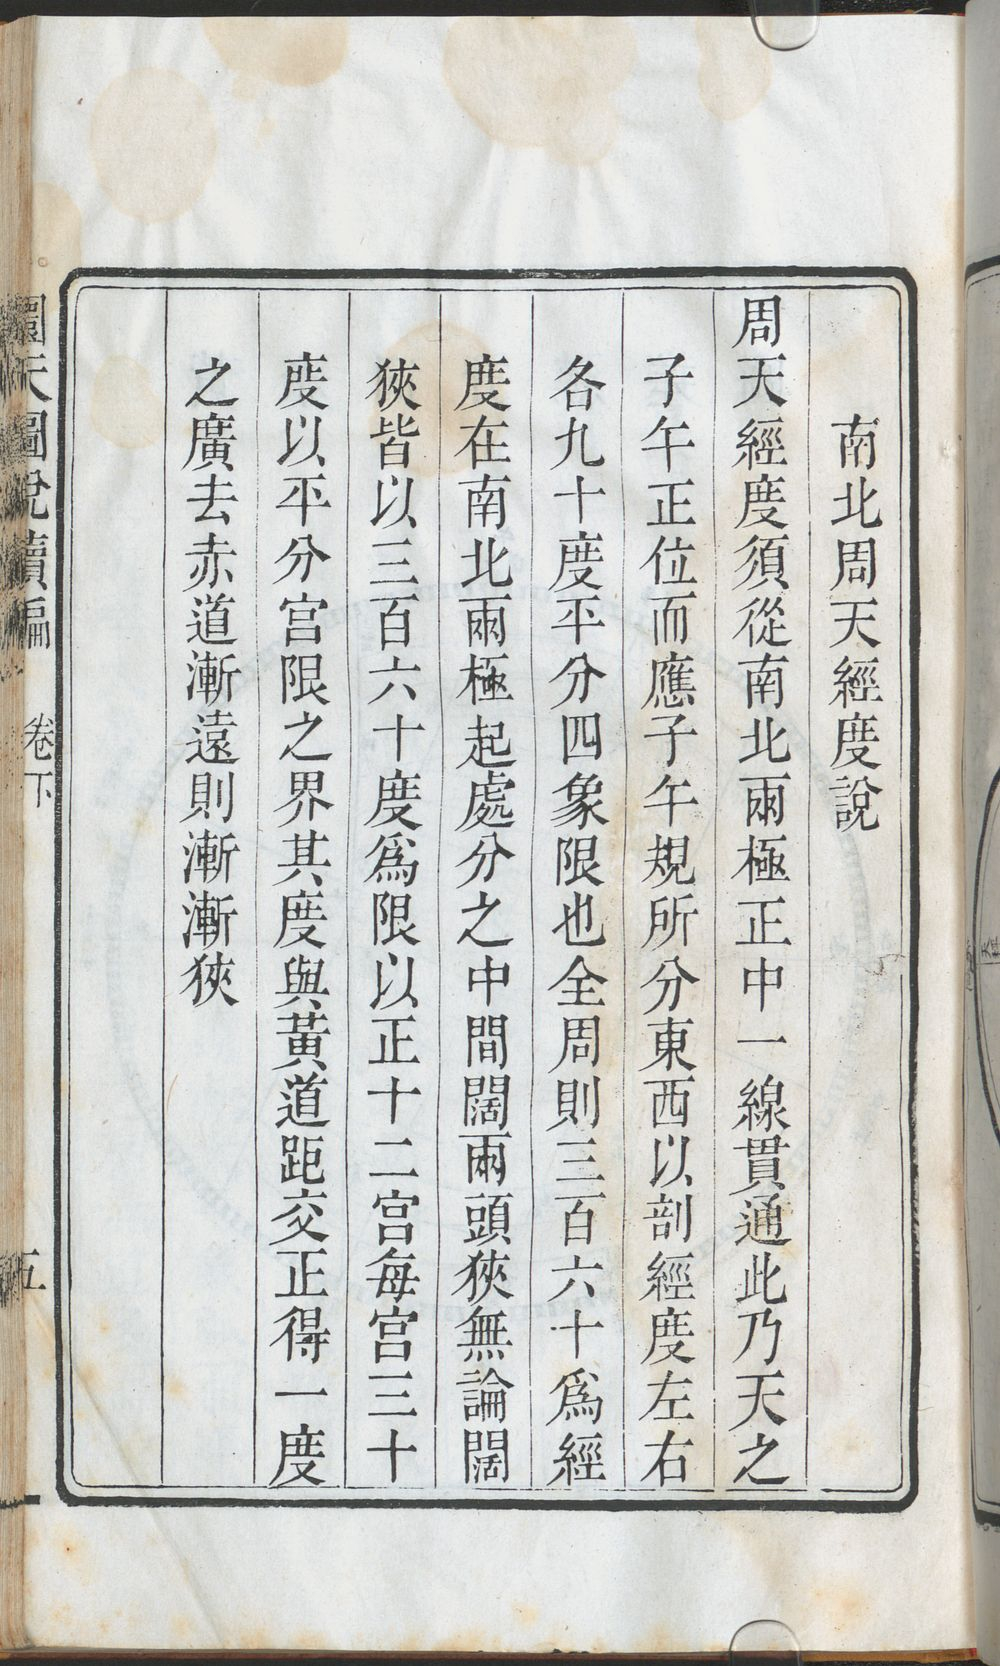 南北周天經度說
周天經度須從南北兩極正中一線貫通此乃天之
子午正位而應子午規所分東西以剖經度左右
各九十度平分四象限也全周則三百六十爲經
度在南北兩極起處分之中間闊兩頭狹無論闊
狹皆以三百六十度爲限以正十二宮每宮三十
度以平分宮限之界其度與黃道距交正得一度
之廣去赤道漸遠則漸漸狹
圜天圖說續編
卷下
五